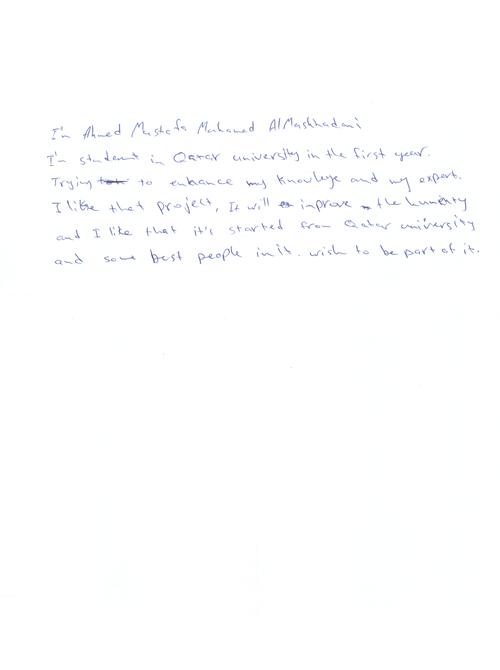 I'm Ahmed Mustafa Mohamed AlMashhadani
I'm student in Qatar university in the first year.
Trying to enhance my knowlege and my expert.
I like that project, It will inprove the humenty
and I like that it's started from Qatar university
and some best people in it. wish to be part of it.